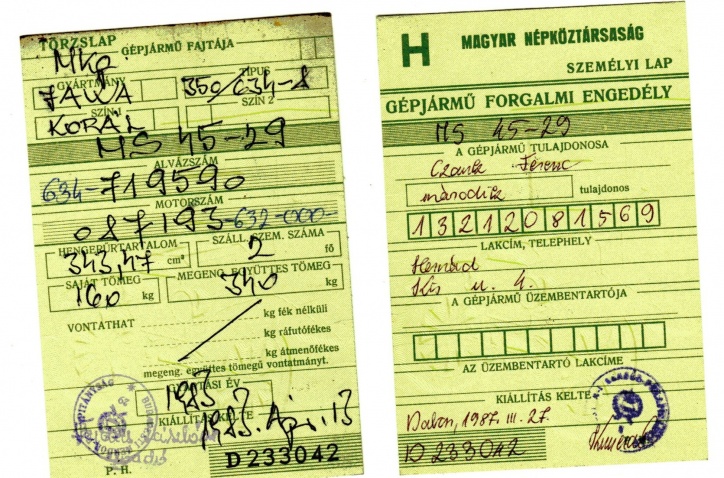 TÖRZSLAP GÉPJÁRMŰ FAJTÁJA
Mkp
GYÁRTMÁNY TÍPUS
JAWA 350/634-8
SZÍN 1 SZÍN 2
KORÁL
MS 45-29
ALVÁZSZÁM
634-719590
MOTORSZÁM
087193-632-000-
HENGERŰRTARTALOM SZÁLL. SZEM. SZÁMA
343,47 cm³ 2 fő
SAJÁT TÖMEG MEGENG. EGYÜTTES TÖMEG
160 kg 340 kg
VONTATHAT kg fék nélküli
kg ráfutófékes
kg átmenőfékes
megeng. együttes tömegű vontatmányt.
GYÁRTÁSI ÉV
1983
KIÁLLÍTÁS KELTE
1983. Ápr. 13
P. H. D 233042
H MAGYAR NÉPKÖZTÁRSASÁG
SZEMÉLYI LAP
GÉPJÁRMŰ FORGALMI ENGEDÉLY
MS 45-29
A GÉPJÁRMŰ TULAJDONOSA
Ferenc
második tulajdonos
13212081569
LAKCÍM, TELEPHELY
Hernád
Kis u. 4.
A GÉPJÁRMŰ ÜZEMBENTARTÓJA
AZ ÜZEMBENTARTÓ LAKCÍME
KIÁLLÍTÁS KELTE
Dabas, 1987. III. 27.
D 233042